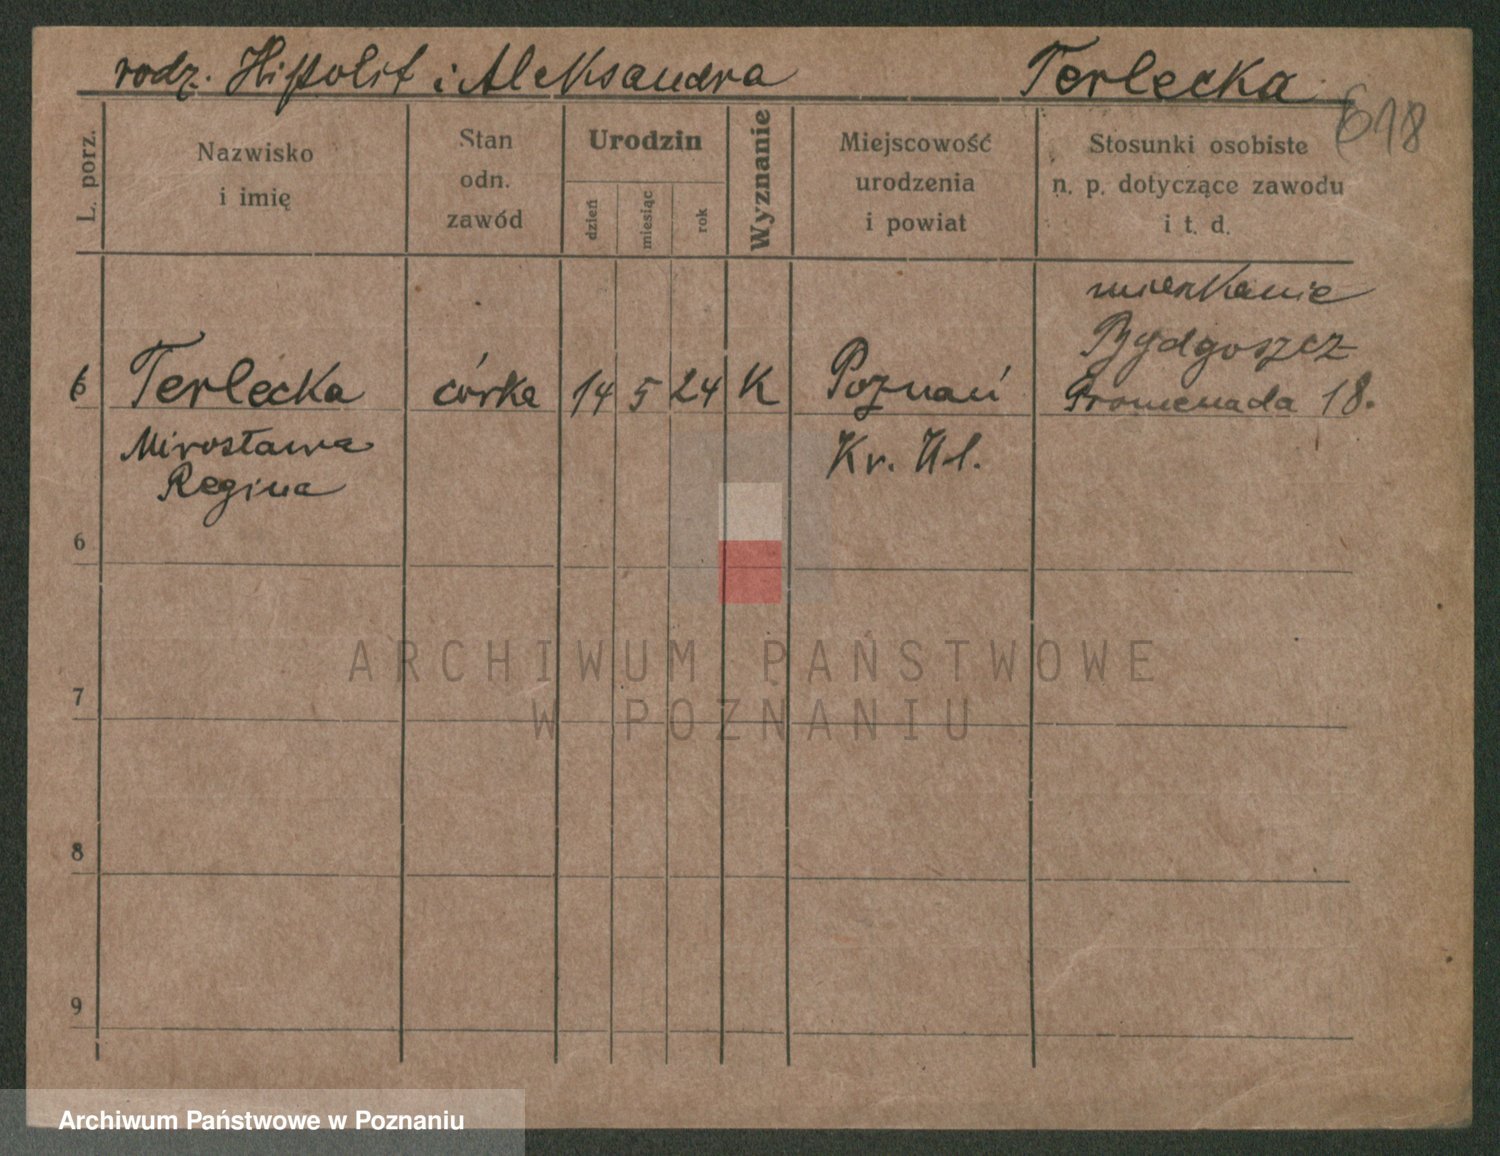 rodz. Hipolit i Aleksandra Terlecka
618
L. porz.
Nazwisko
i imię
Stan
odn.
zawód
Urodzin
dzień
miesiąc
rok
Wyznanie
Miejscowość
urodzenia
i powiat
Stosunki osobiste
n. p. dotyczące zawodu
i t. d.
mieszkanie
Bydgoszcz
6 Terlecka córka 14 5 24 K Poznań Promenada 18.
Mirosława Kr. Wl.
Regina
6
7
8
9
ARCHIWUM PAŃSTWOWE
W POZNANIU
Archiwum Państwowe w Poznaniu